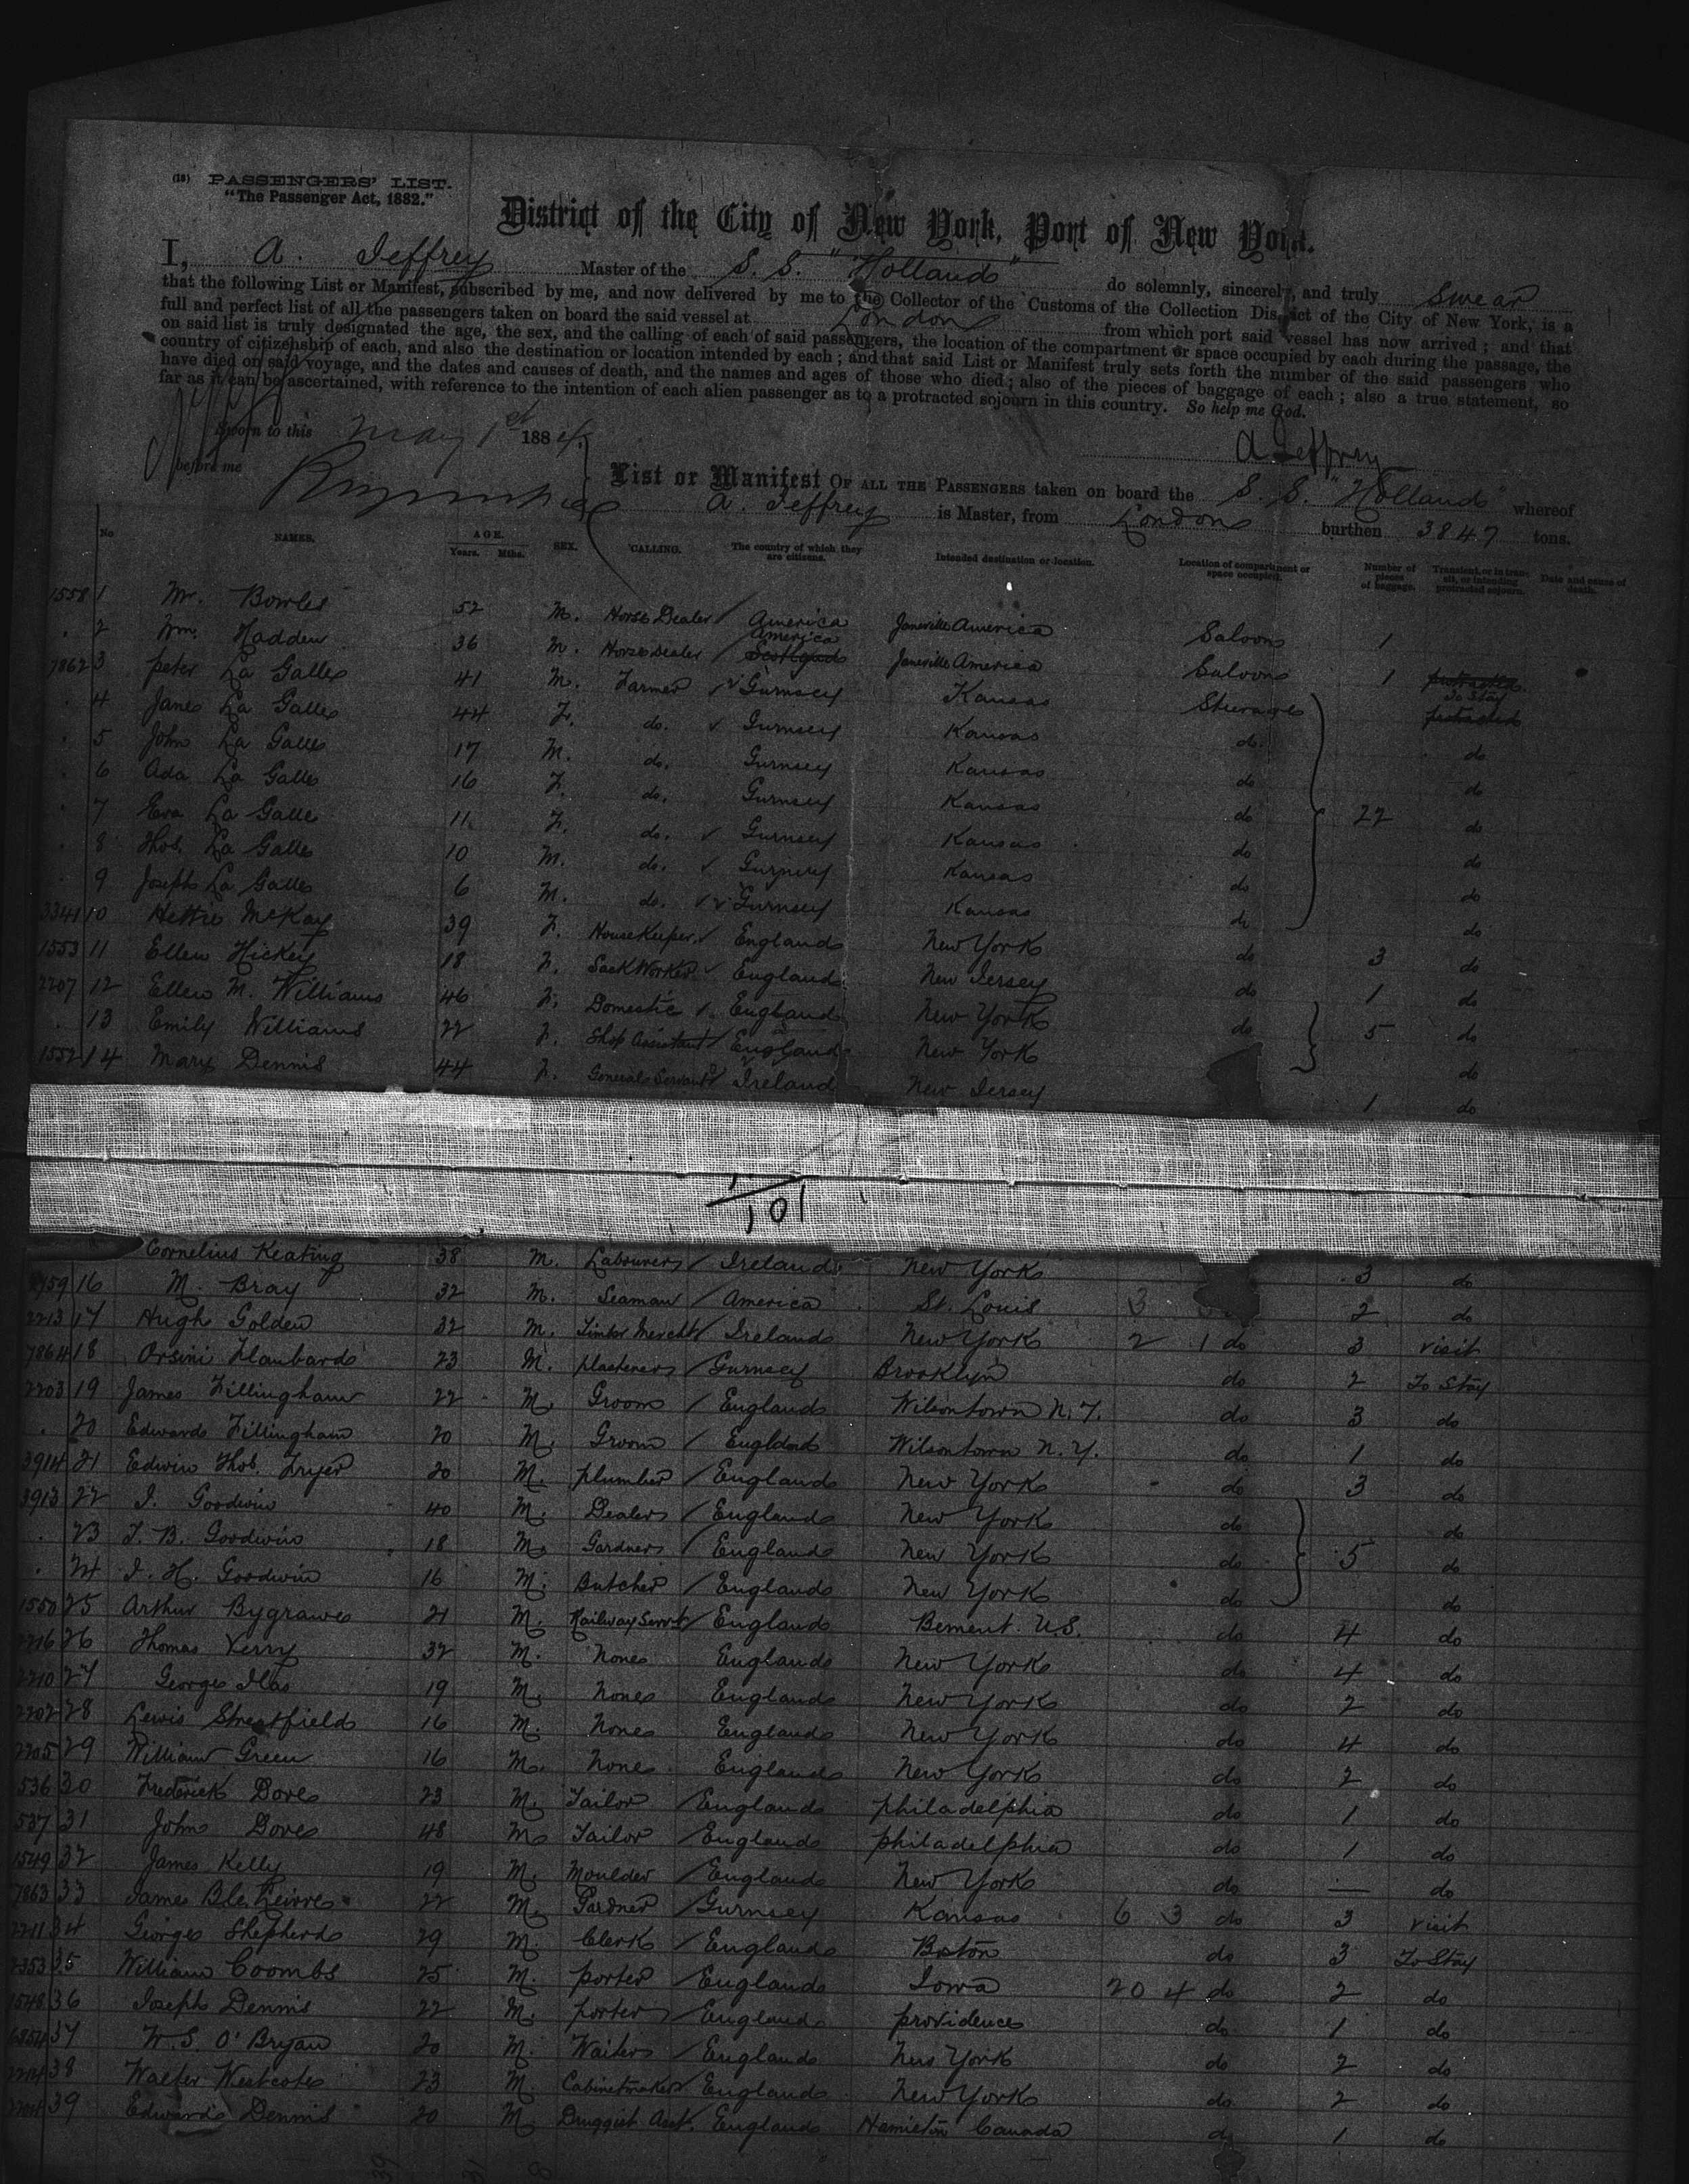 (18) PASSENGERS' LIST.
"The Passenger Act, 1882."
District of the City of New York, Port of New York.
I, A. Jeffrey Master of the S. S. "Holland" do solemnly, sincerely, and truly Swear
that the following List or Manifest, subscribed by me, and now delivered by me to the Collector of the Customs of the Collection District of the City of New York, is a
full and perfect list of all the passengers taken on board the said vessel at London from which port said vessel has now arrived; and that
on said list is truly designated the age, the sex, and the calling of each of said passengers, the location of the compartment or space occupied by each during the passage, the
country of citizenship of each, and also the destination or location intended by each; and that said List or Manifest truly sets forth the number of the said passengers who
have died on said voyage, and the dates and causes of death, and the names and ages of those who died; also of the pieces of baggage of each; also a true statement, so
far as it can be ascertained, with reference to the intention of each alien passenger as to a protracted sojourn in this country. So help me God.
Sworn to this May 1st 1884.
A Jeffrey
before me
List or Manifest OF ALL THE PASSENGERS taken on board the S. S. "Holland" whereof
A. Jeffrey is Master, from London burthen 3847 tons.
No NAMES. AGE. Years. Mths. SEX. CALLING. The country of which they are citizens. Intended destination or location. Location of compartment or space occupied. Number of pieces of baggage. Transient, or in transit, or intending protracted sojourn. Date and cause of death.
1558 1 Mr. Bowles 52 M. Horse Dealer America Janeville America Saloon 1
2 Wm. Hadden 36 M. Horse Dealer America Scotland Janeville America Saloon 1 protracted
7862 3 peter La Galle 41 M. Farmer Gurnsey Kansas Steerage To Stay protracted
4 Jane La Galle 44 F. do. Gurnsey Kansas do. do
5 John La Galle 17 M. do. Gurnsey Kansas do do
6 Ada La Galle 16 F. do. Gurnsey Kansas do 22 do
7 Eva La Galle 11 F. do. Gurnsey Kansas do do
8 Thos. La Galle 10 M. do. Gurnsey Kansas do do
9 Joseph La Galle 6 M. do. Gurnsey Kansas do do
3341 10 Hettie McKay 39 F. House Keeper England New York do 3 do
1553 11 Ellen Hickey 18 F. Sack Worker England New Jersey do 1 do
2207 12 Ellen M. Williams 46 F. Domestic England New York do 5 do
13 Emily Williams 22 F. Shop Assistant England New York do
1552 14 Mary Dennis 44 F. General Servant Ireland New Jersey 1 do
101
Cornelius Keating 38 M. Labourer Ireland New York 3 do
16 M. Bray 32 M. Seaman America St. Louis 3 2 do
2213 17 Hugh Golden 32 M. Timber Mercht Ireland New York 2 1 do 3 visit
7864 18 Orsini Flaubard 23 M. plasterer Gurnsey Brooklyn do 2 To Stay
2203 19 James Fillingham 22 M. Groom England Wilsontown N. Y. do 3 do
20 Edward Fillingham 20 M. Groom England Wilsontown N. Y. do 1 do
3914 21 Edwin Thos. Fryer 20 M. plumber England New York do 3 do
3913 22 J. Goodwin 40 M. Dealer England New York do do
23 J. B. Goodwin 18 M. Gardner England New York do 5 do
24 J. H. Goodwin 16 M. Butcher England New York do do
1550 25 Arthur Bygrave 21 M. Railway Servt England Bement U.S. do 4 do
2216 26 Thomas Verry 32 M. None England New York do 4 do
2210 27 George Ilas 19 M. None England New York do 2 do
2202 28 Lewis Streatfield 16 M. None England New York do 4 do
2205 29 William Green 16 M. None England New York do 2 do
536 30 Frederick Dove 23 M. Tailor England philadelphia do 1 do
537 31 John Dove 48 M. Tailor England philadelphia do 1 do
1549 32 James Kelly 19 M. Moulder England New York do — do
7863 33 James 22 M. Gardner Gurnsey Kansas 6 3 do 3 visit
2211 34 George Shepherd 29 M. Clerk England Boston do 3 To Stay
2353 35 William Coombs 25 M. porter England Iowa 20 4 do 2 do
1548 36 Joseph Dennis 22 M. porter England providence do 1 do
37 W. S. O'Bryan 20 M. Waiter England New York do 2 do
2214 38 Walter Westcote 23 M. Cabinetmaker England New York do 2 do
39 Edward Dennis 20 M. Druggist Asst. England Hamilton Canada do 1 do